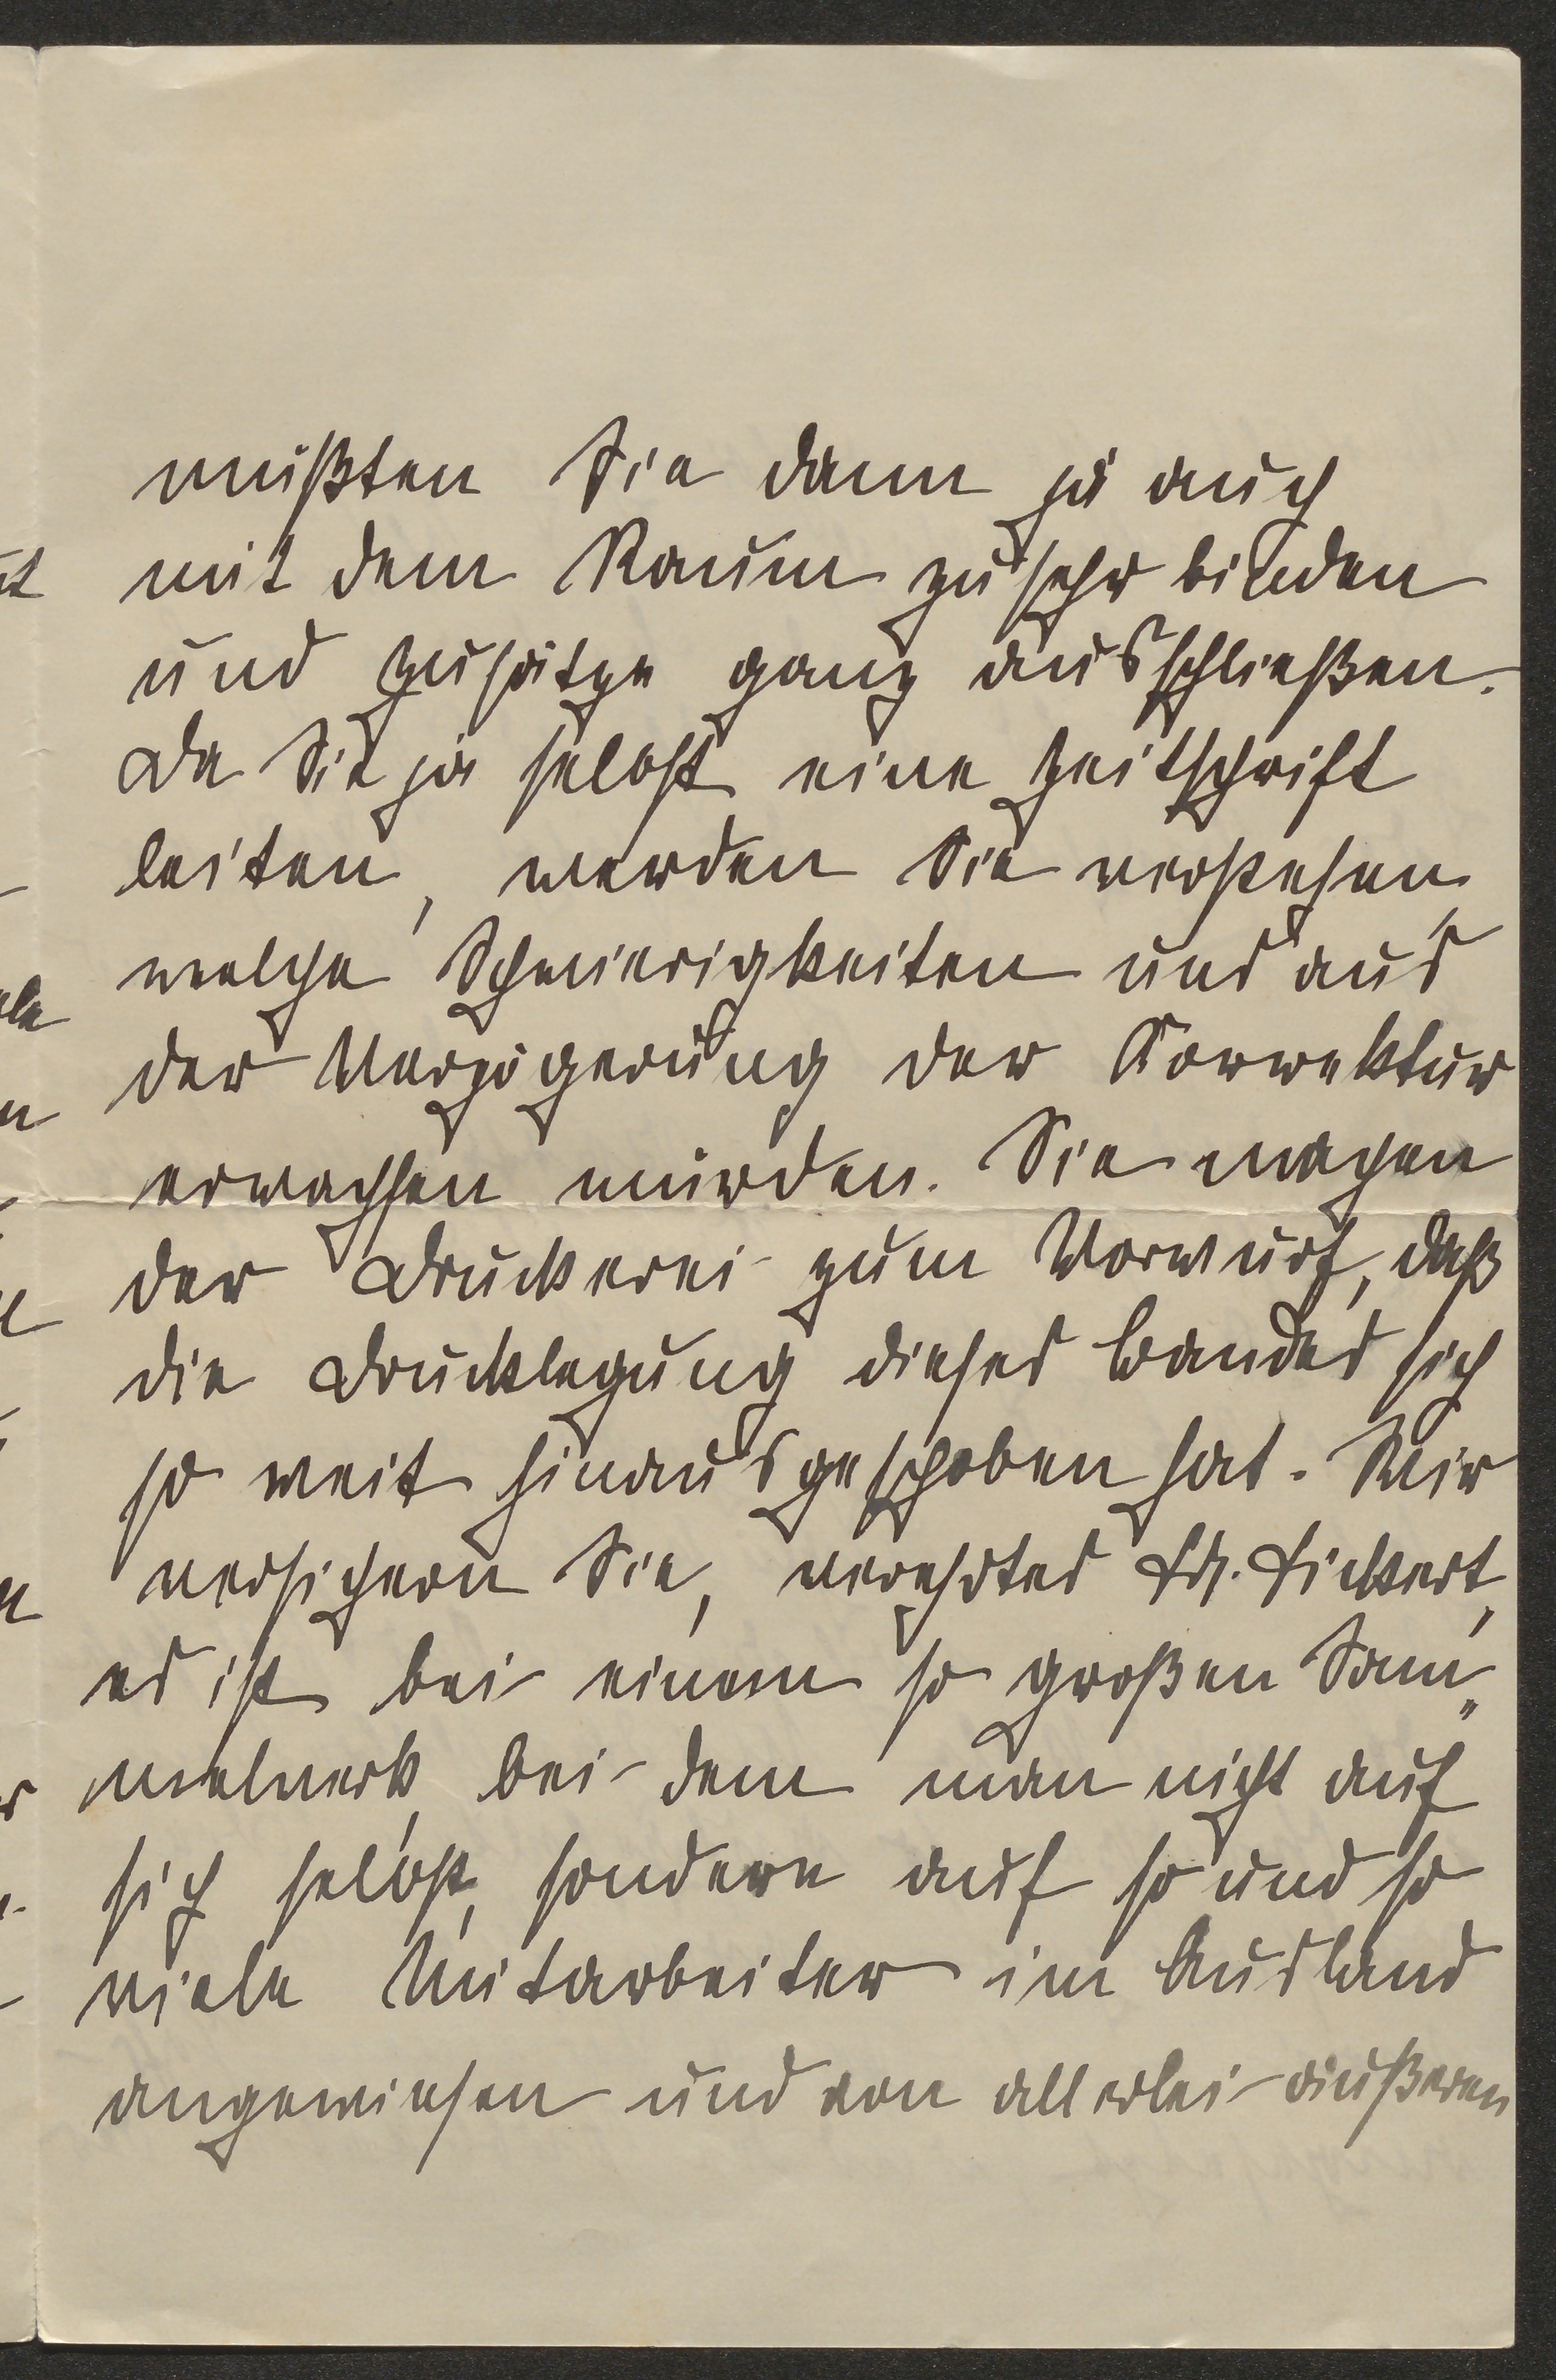 müßten Sie dann ja auch
mit dem Raum zu sehr binden
und Zusätze ganz ausschließen.
Da Sie ja selbst eine Zeitschrift
leiten, werden Sie verstehen,
welche Schwierigkeiten uns aus
der Verzögerung der Korrektur
erwachsen würden. Sie machen
der Druckerei zum Vorwurf, daß
die Drucklegung dieses Bandes sich
so weit hinausgeschoben hat. Wir
versichern Sie, verehrtes Frl. Fickert,
es ist bei einem so großen Sam„
melwerk, bei dem man nicht auf
sich selbst, sondern auf so und so
viele Mitarbeiter im Ausland
angewiesen und von allerlei äußeren